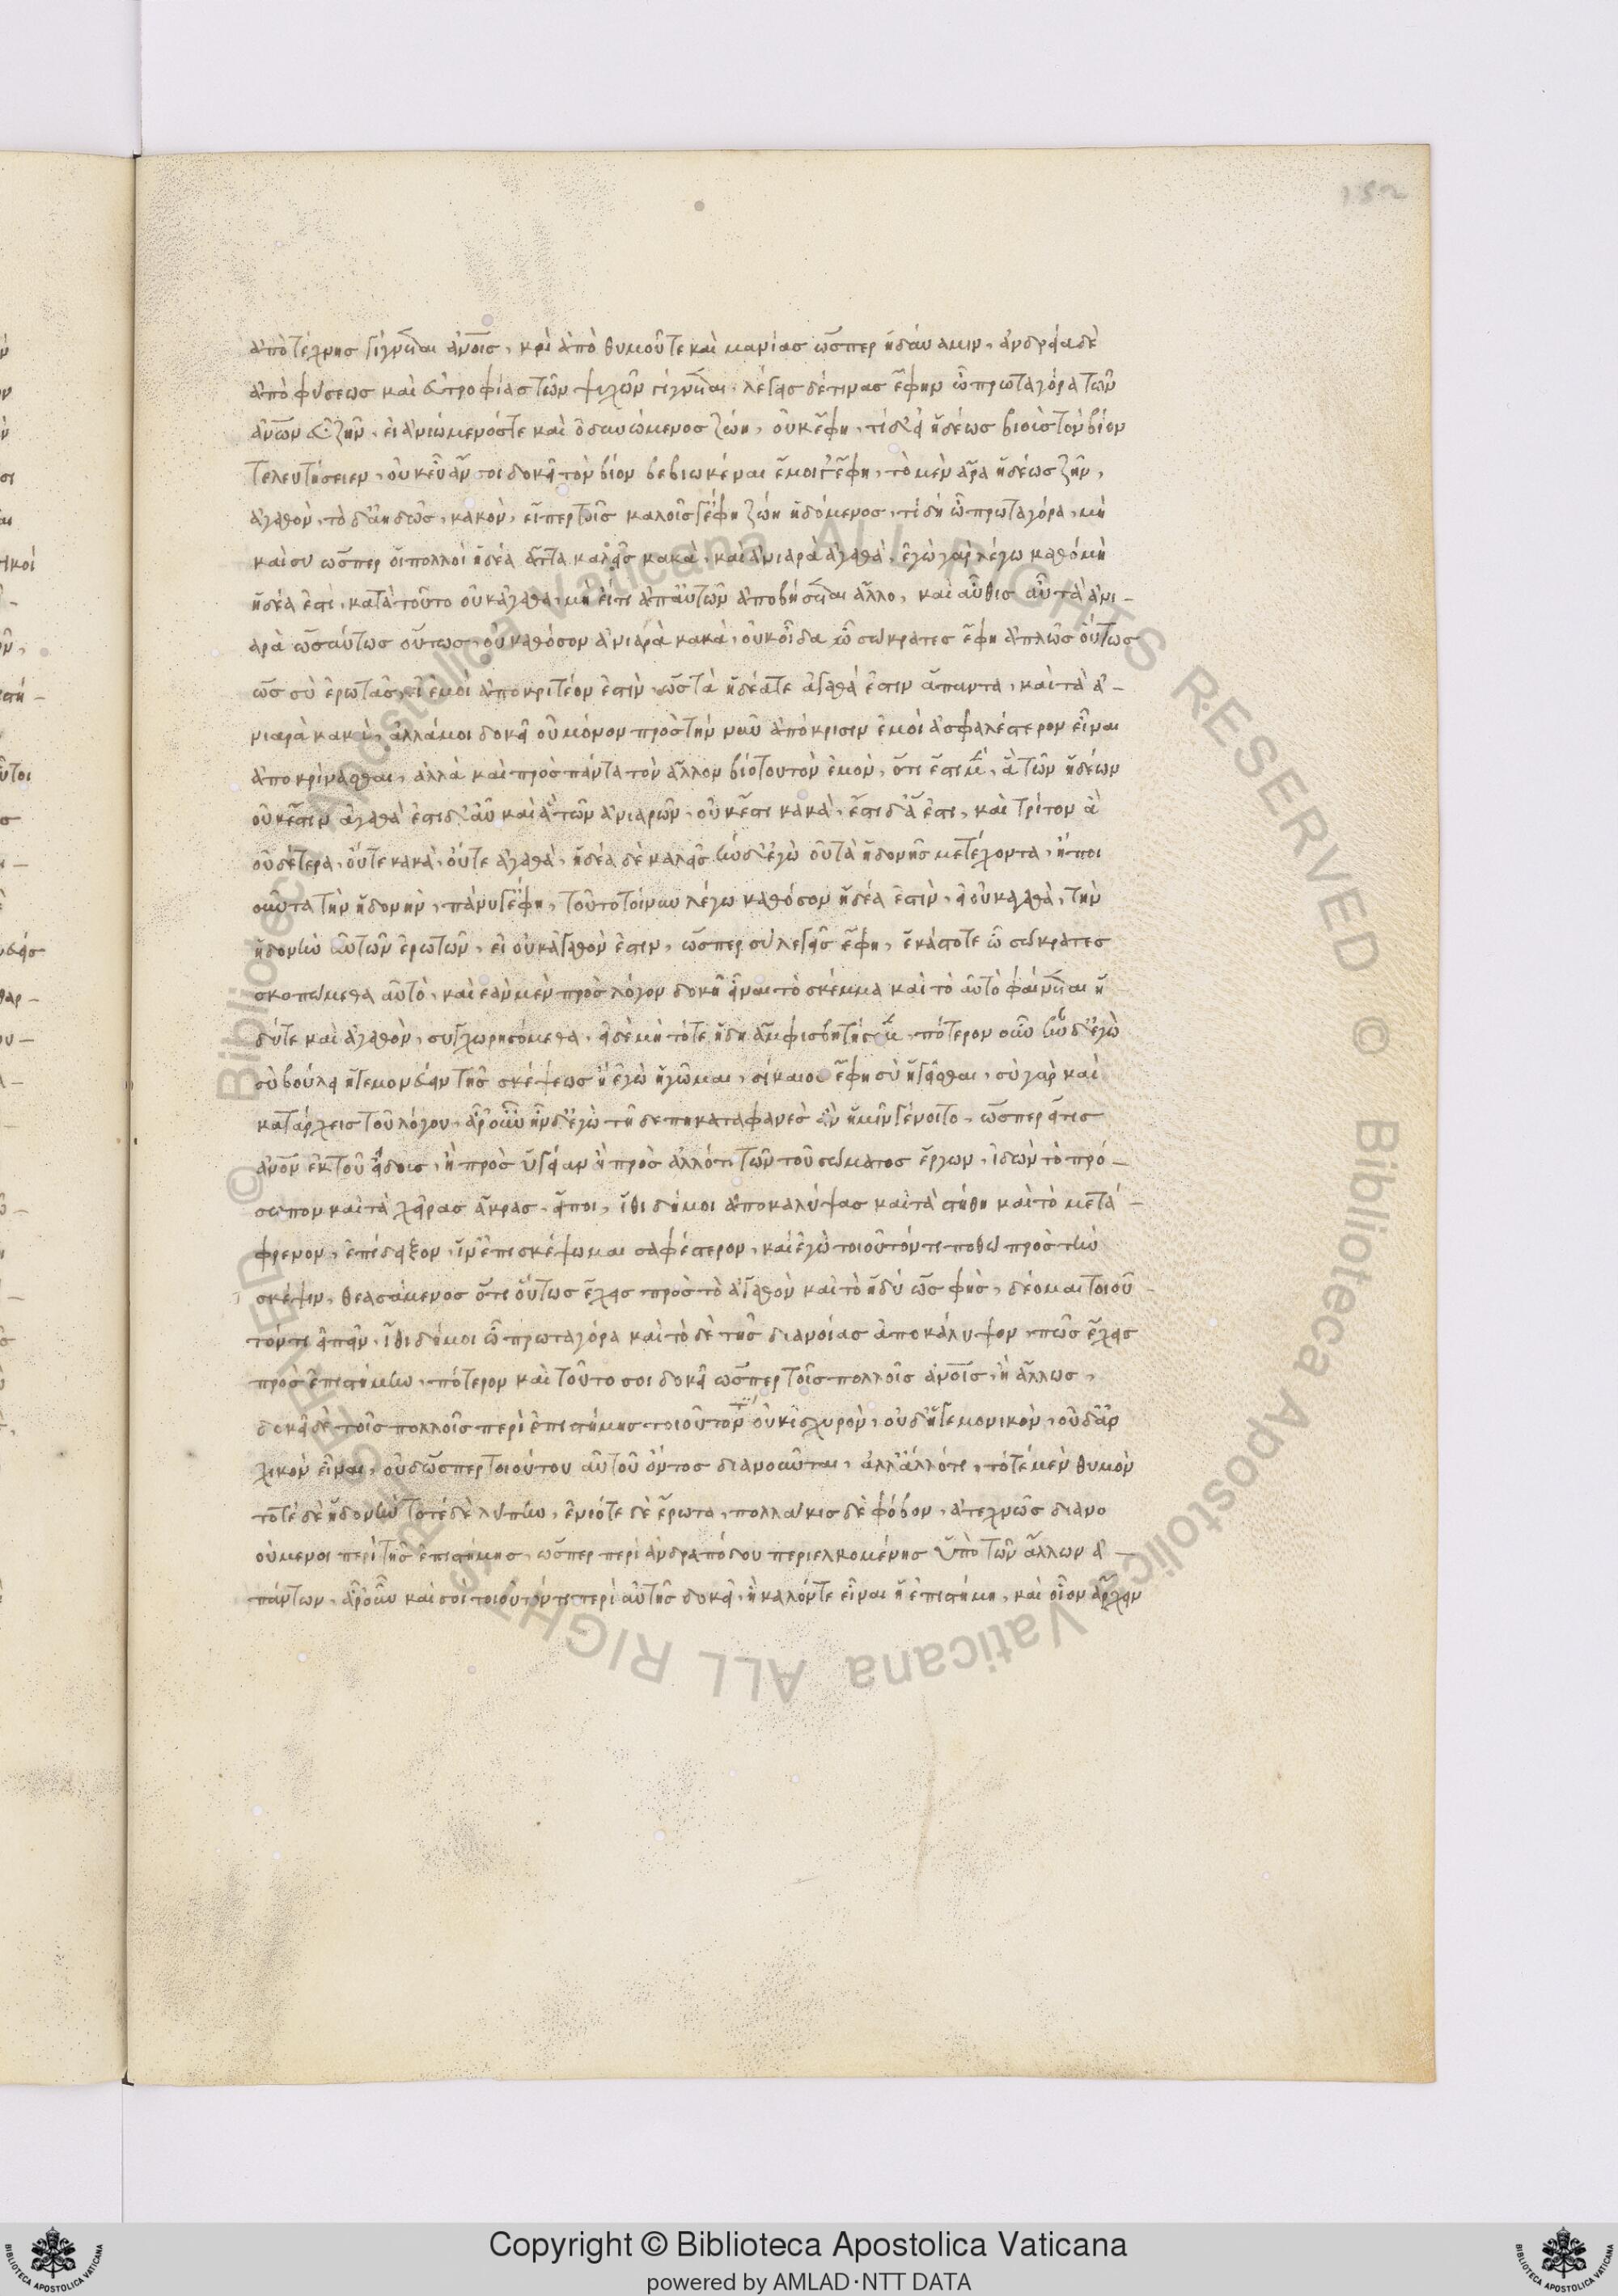 152
ἀπὸ τέχνης γίγνεται ἀνοις, καὶ ἀπὸ θυμοῦτε καὶ μανίας ὥσπερ ἡ δύναμιν, ἀνδρεία δὲ
ἀπὸ φύσεως καὶ εὐτροφίας τῶν ψυχῶν γίγνεται. λέγεις δέ τινας ἔφην ὦ πρωταγόρα τῶν
ἀνων εὖ ζῆν, εἰ ἀνιώμενός τε καὶ ὀδυνώμενος ζώη, οὐκ ἔφη, τί δ' εἰ ἡδέως βιοὺς τὸν βίον
τελευτήσειεν, οὐκ εὖ ἄν σοι δοκεῖ τὸν βίον βεβιωκέναι ἔμοιγ' ἔφη, τὸ μὲν ἄρα ἡδέως ζῆν,
ἀγαθὸν, τὸ δ' ἀηδῶς, κακὸν, εἴπερ τοῖς καλοῖς γ' ἔφη ζώη ἡδόμενος, τί δὴ ὦ πρωταγόρα, μὴ
καὶ συ ὥσπερ οἱ πολλοὶ ἡδέα ἄττα καλεῖς κακὰ, καὶ ἀνιαρὰ ἀγαθά, ἐγὼ γὰρ λέγω καθό μὴ
ἡδέα ἐστι, κατὰ τοῦτο οὐκ ἀγαθα, μὴ εἴ τι ἀπ' αὐτῶν ἀποβήσεται ἄλλο, καὶ αὖθις αὖ τὰ ἀνι-
αρὰ ὡσαύτως οὕτως, οὐ καθόσον ἀνιαρὰ κακὰ, οὐκ οἶδα ὦ σώκρατες ἔφη ἁπλῶς οὕτως
ὡς σὺ ἐρωτᾷς, εἰ ἐμοὶ ἀποκριτέον ἐστὶν, ὡς τὰ ἡδέατε ἀγαθά ἐστιν ἅπαντα, καὶ τὰ ἀ-
νιαρὰ κακὰ, ἀλλά μοι δοκεῖ οὐ μόνον πρὸς τὴν νῦν ἀπόκρισιν ἐμοὶ ἀσφαλέστερον εἶναι
ἀποκρίνασθαι, ἀλλὰ καὶ πρὸς πάντα τὸν ἄλλον βίοτουτὸν ἐμὸν, ὅτι ἔστι μὲν, ἃ τῶν ἡδέων
οὐκ ἔστιν ἀγαθὰ ἔστι δ' αὖ καὶ ἃ τῶν ἀνιαρῶν, οὐκ ἔστι κακὰ, ἔστι δ' ἃ ἔστι, καὶ τρίτον ἃ
οὐδέτερα, οὔτε κακὰ, οὔτε ἀγαθὰ, ἡδέα δὲ καλεῖς ἦν δ' ἐγὼ οὐ τὰ ἡδονῆς μετέχοντα, ἢ ποι
οῦντα τὴν ἡδονὴν, πάνυ γ' ἔφη, τοῦτο τοίνυν λέγω καθόσον ἡδέα ἐστὶν, εἰ οὐκ αγαθὰ, τὴν
ἡδονὴν αὐτῶν ἐρωτῶν, εἰ οὐκ ἀγαθόν ἐστιν, ὥσπερ σὺ λεγεις ἔφη, ἑκάστοτε ὦ σώκρατες
σκοπώμεθα αὐτὸ, καὶ εὰν μὲν πρὸς λόγον δοκῇ εἶναι τὸ σκέμμα καὶ τὸ αὐτὸ φαίνηται ἡ
δύτε καὶ ἀγαθὸν, συγχωρησόμεθα, εἰ δὲ μὴ τότε ἤδη ἀμφισβητήσομεν, πότερον οὖν ἦν δ' ἐγὼ
σὺ βούλει ἡγεμονεύειν τῆς σκέψεως ἢ ἐγὼ ἡγῶμαι, δίκαιος ἔφη σὺ ἡγεῖσθαι, σὺ γὰρ καὶ
κατάρχεις τοῦ λόγου, ἆρ' οὖν ἦν δ' ἐγὼ τῇδε πη καταφανες ἂν ἡμῖν γένοιτο, ὥσπερ εἴ τις
ἀνον ἐκ τοῦ εἴδους, ἢ πρὸς ὑγείαν ἢ πρὸς ἀλλό τι τῶν τοῦ σώματος ἔργων, ἰδὼν τὸ πρό-
σωπον καὶ τὰ χεῖρας ἄκρας, εἴποι, ἴθι δή μοι ἀποκαλύψας καὶ τὰ στήθη καὶ τὸ μετά-
φρενον, ἐπίδειξον, ἵν' ἐπισκέψωμαι σαφέστερον, καὶ ἐγὼ τοιοῦτόν τι ποθω πρὸς τὴν
σκέψιν, θεασάμενος ὅτι οὕτως ἔχεις πρὸς τὸ ἀγαθὸν καὶ τὸ ἡδύ ὡς φῂς, δέομαι τοιοῦ-
τόν τι εἰπεῖν, ἴθι δή μοι ὦ πρωταγόρα καὶ τὸ δὲ τῆς διανοίας ἀποκάλυψον, πῶς ἔχεις
πρὸς ἐπιστήμην, πότερον καὶ τοῦτο σοι δοκεῖ ὥσπερ τοῖς πολλοῖς ἀνοις, ἢ ἄλλως,
δοκεῖ δὲ τοῖς πολλοῖς περὶ ἐπιστήμης τοιοῦτον οὐκ ἰσχυρὸν, οὐδ' ἡγεμονικὸν, οὐδ' ἀρ
χικὸν εἶναι, οὐδ' ὥσπερ τοιούτου αὐτοῦ ὄντος διανοοῦνται, ἀλλ' ἀλλότι, τότε μὲν θυμὸν
τοτὲ δὲ ἡδονὴν τοτὲ δὲ λύπην, ἐνίοτε δὲ ἔρωτα, πολλακις δὲ φόβον, ἀτεχνῶς διανο
ούμενοι περὶ τῆς ἐπιστήμης, ὥσπερ περὶ ἀνδραπόδου περιελκομένης ὑπὸ τῶν ἄλλων ἁ-
πάντων, ἆρ' οὖν καὶ σοι τοιοῦτόν τι περὶ αὐτῆς δοκεῖ, ἢ καλόντε εἶναι ἡ ἐπιστήμη, καὶ οἷον ἄρχειν
© Biblioteca Apostolica Vaticana ALL RIGHTS RESERVED
© Biblioteca Apostolica Vaticana ALL RIGHTS RESERVED
Copyright © Biblioteca Apostolica Vaticana
powered by AMLAD·NTT DATA